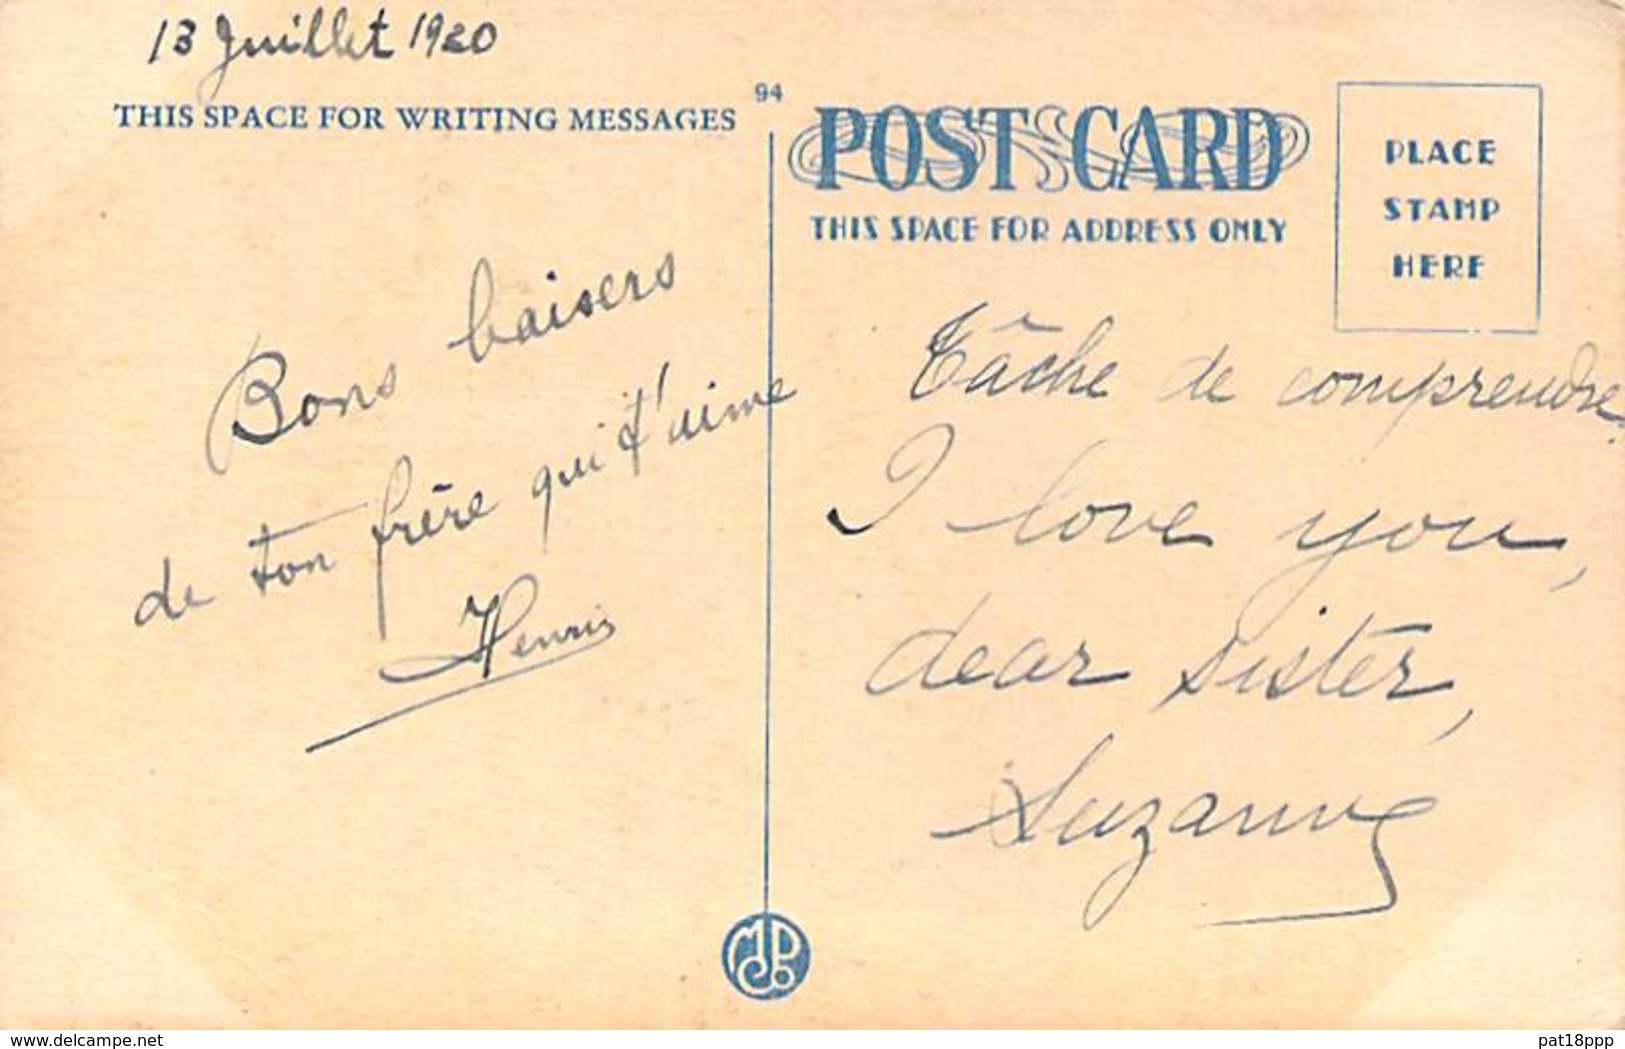 13 Juillet 1920
THIS SPACE FOR WRITING MESSAGES
94
Bons baisers
de ton frère qui t'aime
Henri
POST CARD
THIS SPACE FOR ADDRESS ONLY
PLACE
STAMP
HERE
Tâche de comprendre
I love you,
dear sister,
Suzanne
www.delcampe.net
pat18ppp